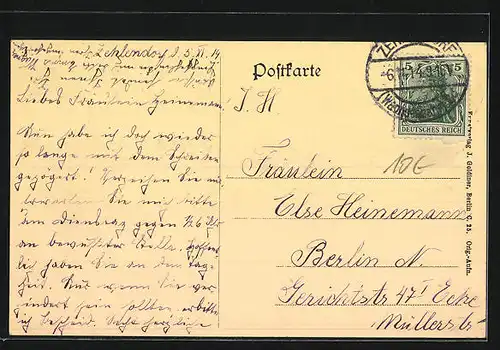 Zehlendorf d. 5. XI. 14
Liebes Fräulein Heinemann
Nun habe ich doch wieder
so lange mit dem Schreiben
gezögert! Verzeihen Sie mir
erwarten Sie mich bitte
am Dienstag gegen ½6 Uhr
an bewußter Stelle. Hoffent-
lich haben Sie an dem Tage
Zeit. Nur wenn Sie ver-
hindert sein sollten erbitte
ich Bescheid. Recht herzliche
Postkarte
I. H.
Fräulein
Else Heinemann
Berlin N.
Gerichtstr 47 I Ecke
Müllerstr
ZEHLENDORF
-6.11.14
(Wannseebahn)
5 5
DEUTSCHES REICH
10€
Kunstverlag J. Goldiner, Berlin C. 25. Orig.-Aufn.